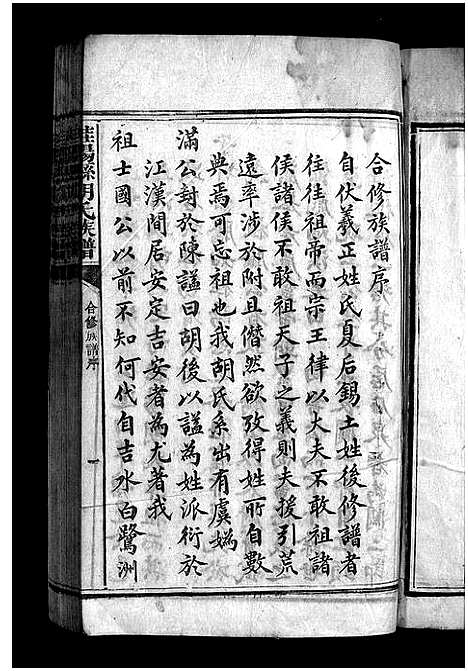 合修族譜序
自伏羲正姓氏夏后錫土姓後修譜者
往往祖帝而宗王律以大夫不敢祖諸
侯諸侯不敢祖天子之義則夫援引荒
遠率涉於附且僭然欲攷得姓所自數
典焉可忘祖也我胡氏系出有虞媯
滿公封於陳諡曰胡後以諡為姓派衍於
江漢間居安定吉安者為尤著我
祖士國公以前不知何代自吉水白鷺洲
桂陽縣胡氏族譜
合修族譜序
一